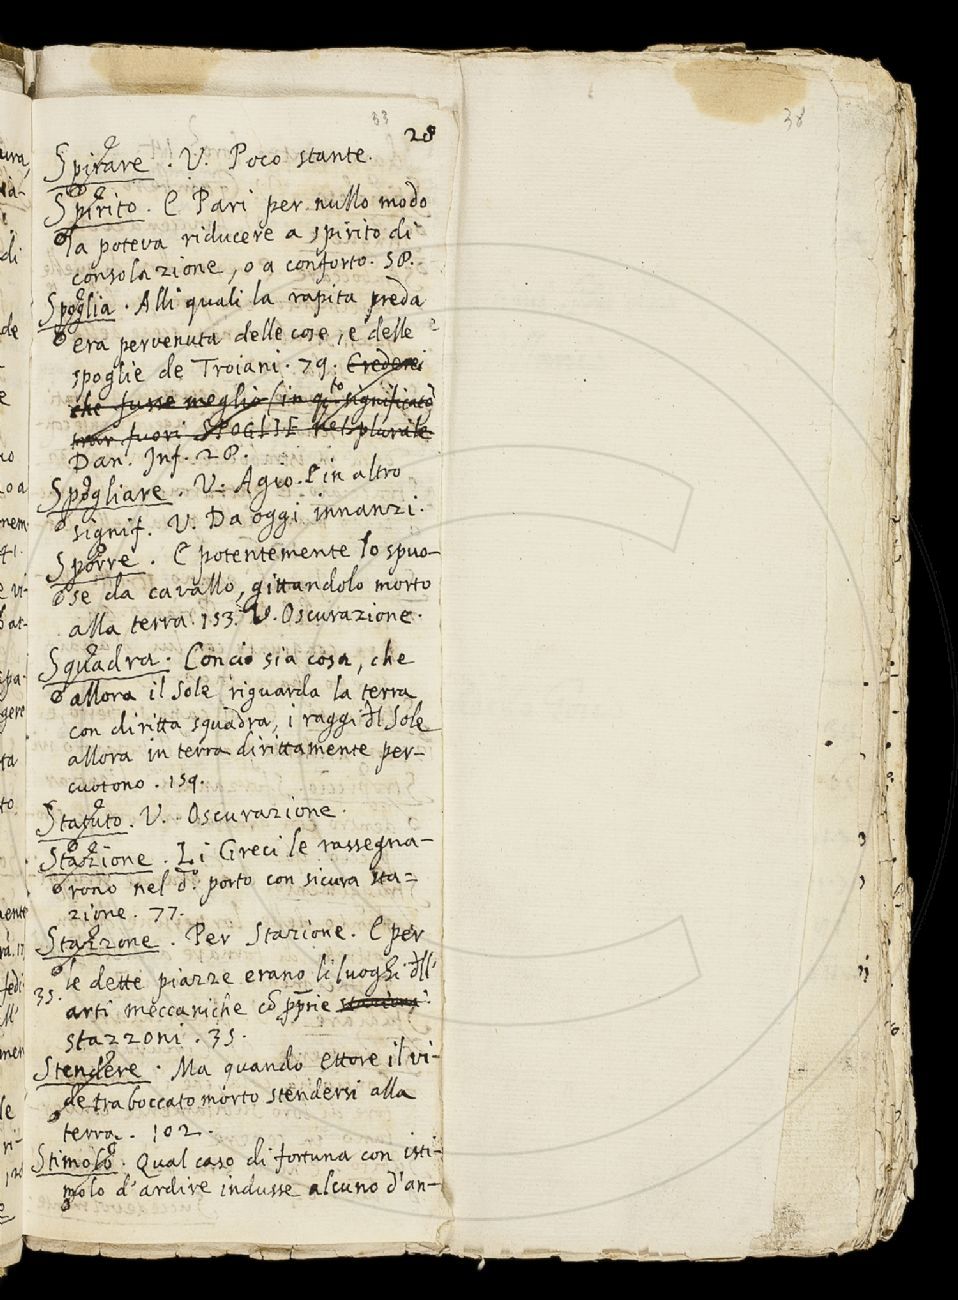 33
28
38
Spirare. V. Poco stante.
Spirito. E Pari per nullo modo
la poteva riducere a spirito di
consolazione, o a conforto. 58.
Spoglia. Alli quali la rapita preda
era pervenuta delle cose, e delle
spoglie de Troiani. 79. Crederei
che fusse meglio (in q.to significato
trar fuori SPOGLIE nel plurale
Dan. Inf. 28.
Spogliare. V. Agio. E in altro
signif. V. Da oggi innanzi.
Sporre. E potentemente lo spuo-
se da cavallo, gittandolo morto
alla terra. 153. V. Oscurazione.
Squadra. Concio sia cosa, che
allora il Sole riguarda la terra
con diritta squadra, i raggi dl Sole
allora in terra dirittamente per-
cuotono. 159.
Statuto. V. Oscurazione.
Stazione. Li Greci le rassegna-
rono nel d.o porto con sicura sta=
zione. 77.
Stazzone. Per Stazione. E per
le dette piazze erano li luoghi dll'
35. arti meccaniche cō pprie
stazzoni. 35.
Stendere. Ma quando Ettore il vi-
de traboccato morto stendersi alla
terra. 102.
Stimolo. Qual caso di fortuna con isti-
molo d'ardire indusse alcuno d'an-